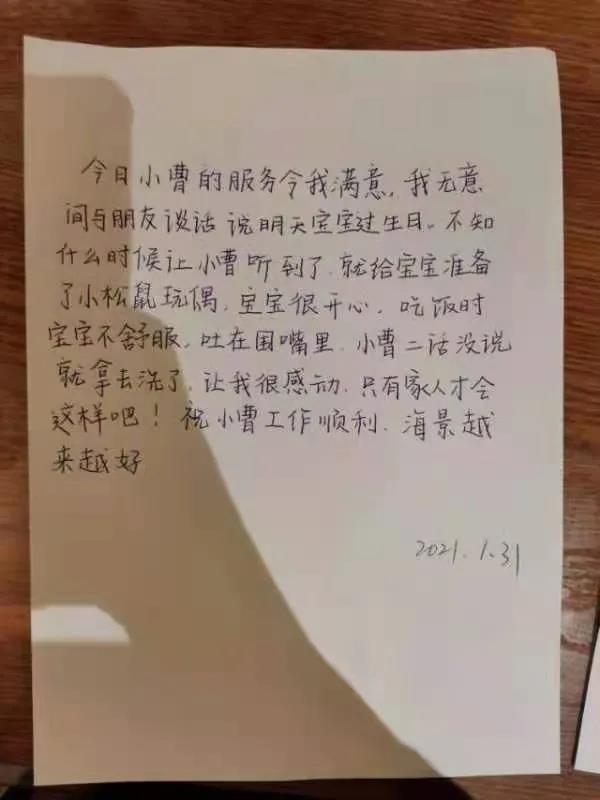 今日小曹的服务令我满意，我无意
间与朋友谈话说明天宝宝过生日。不知
什么时候让小曹听到了.就给宝宝准备
了小松鼠玩偶，宝宝很开心，吃饭时
宝宝不舒服，吐在围嘴里.小曹二话没说
就拿去洗了，让我很感动.只有家人才会
这样吧！祝小曹工作顺利.海景越
来越好
2021.1.31